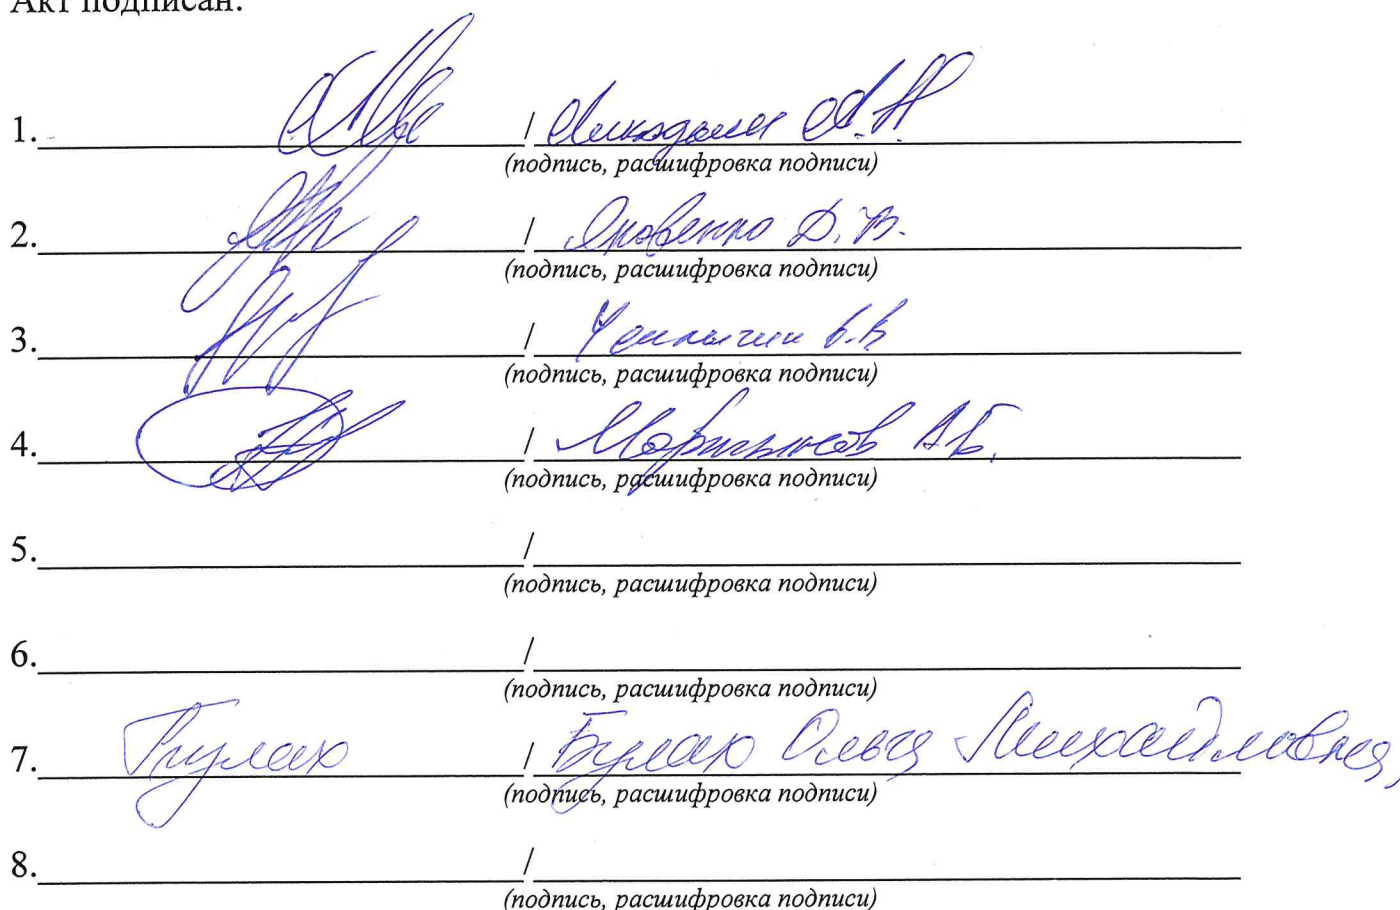 Акт подписан:
1. /
(подпись, расшифровка подписи)
2. / Яковенко Д. В.
(подпись, расшифровка подписи)
3. /
(подпись, расшифровка подписи)
4. / А.Б.
(подпись, расшифровка подписи)
5. /
(подпись, расшифровка подписи)
6. /
(подпись, расшифровка подписи)
7. / Булах Ольга Михайловна,
(подпись, расшифровка подписи)
8. /
(подпись, расшифровка подписи)